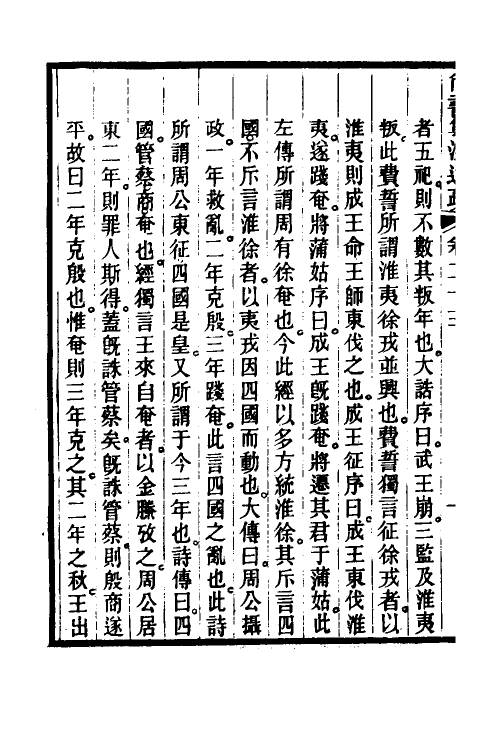 尚書集注述疏 卷二十三 一
者五祀則不數其叛年也大誥序曰武王崩三監及淮夷
叛此費誓所謂淮夷徐戎並興也費誓獨言征徐戎者以
淮夷則成王命王師東伐之也成王征序曰成王東伐淮
夷遂踐奄將蒲姑序曰成王旣踐奄將遷其君于蒲姑此
左傳所謂周有徐奄也今此經以多方統淮徐其斥言四
國不斥言淮徐者以夷戎因四國而動也大傳曰周公攝
政一年救亂二年克殷三年踐奄此言四國之亂也此詩
所謂周公東征四國是皇又所謂于今三年也詩傳曰四
國管蔡商奄也經獨言王來自奄者以金縢攷之周公居
東二年則罪人斯得蓋旣誅管蔡矣旣誅管蔡則殷商遂
平故曰二年克殷也惟奄則三年克之其二年之秋王出